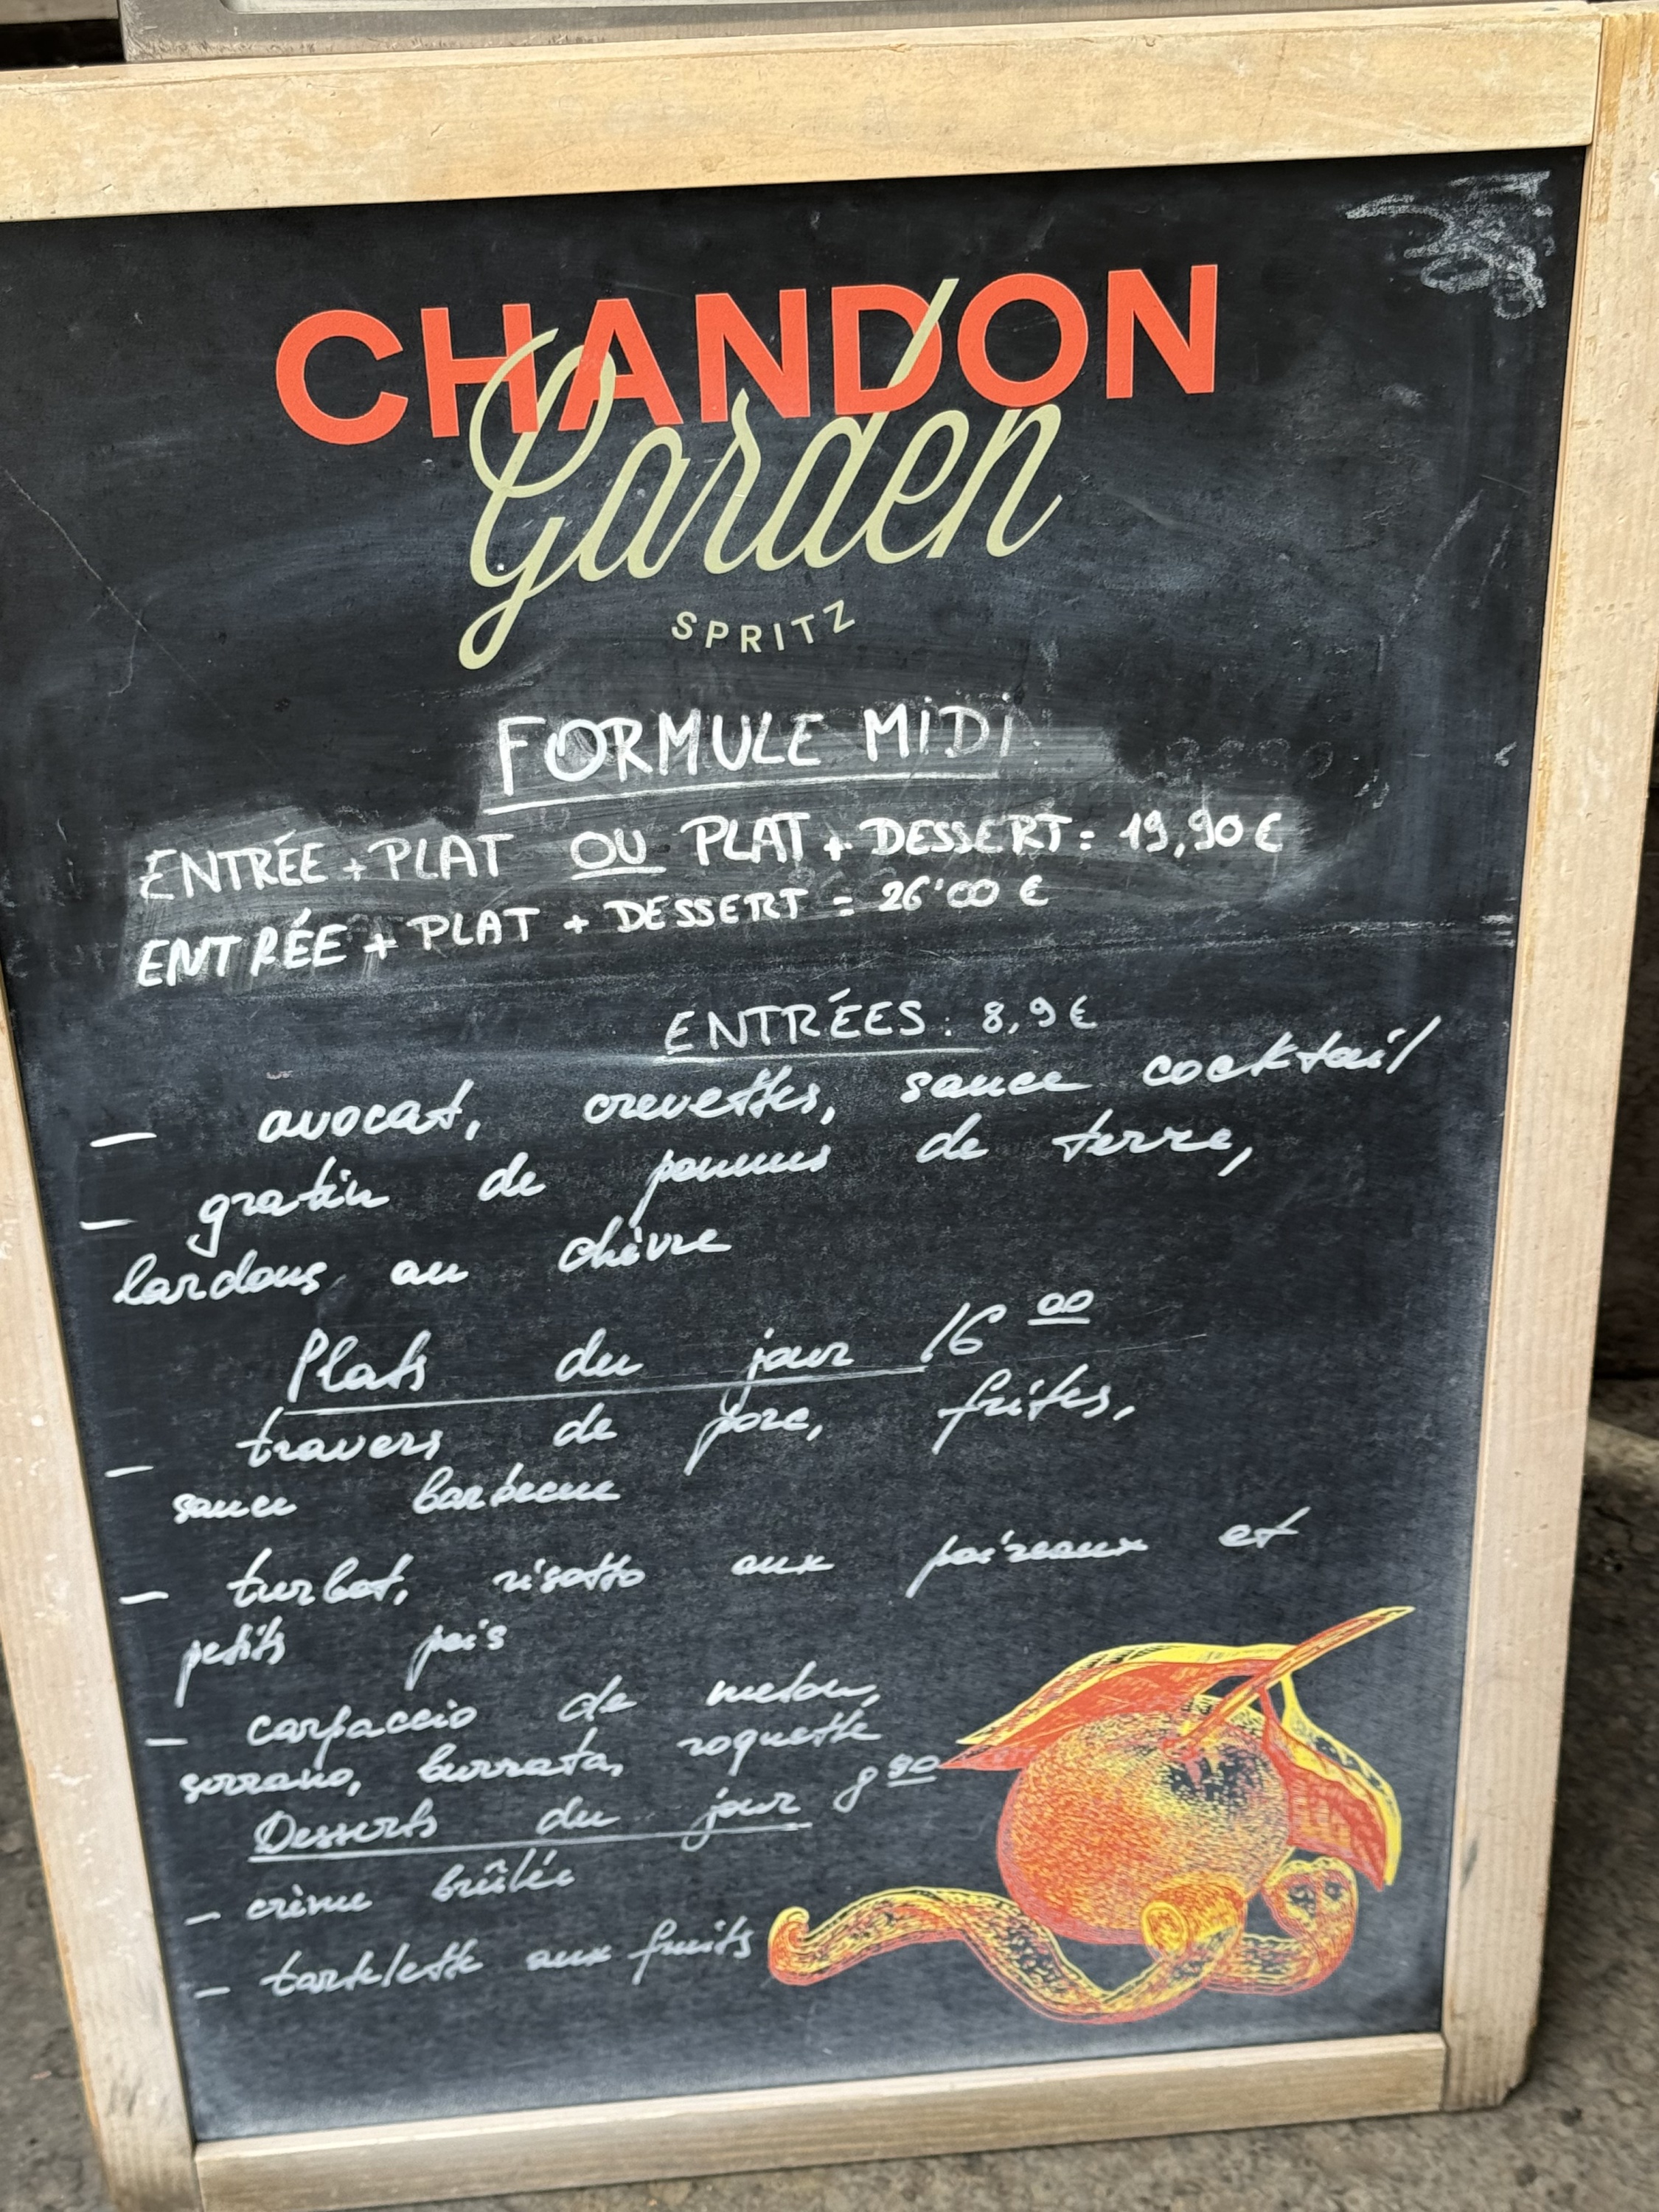 CHANDON
Garden
SPRITZ
FORMULE MIDI
ENTRÉE + PLAT OU PLAT + DESSERT = 19,90 €
ENTRÉE + PLAT + DESSERT = 26'00 €
ENTRÉES : 8,9 €
— avocat, crevettes, sauce cocktail
— gratin de pommes de terre,
lardons au chèvre
Plats du jour 16 00
— travers de porc, frites,
sauce barbecue
— turbot, risotto aux poireaux et
petits pois
— carpaccio de melon,
serrano, burrata, roquette
Desserts du jour 8 90
— crème brûlée
— tartelette aux fruits